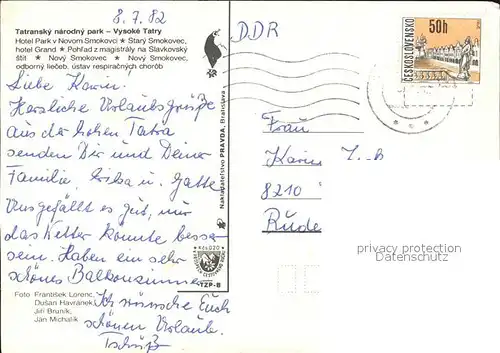 8.7.82
Tatranský národný park – Vysoké Tatry
Hotel Park v Novom Smokovci ★ Starý Smokovec,
hotel Grand ★ Pohľad z magistrály na Slavkovský
štít ★ Nový Smokovec ★ Nový Smokovec,
odborný liečeb. ústav respiračných chorôb
Liebe Karin.
Herzliche Urlaubsgrüße
aus der hohen Tatra
senden Dir und Deiner
Familie, Erika u. Gatte
Uns gefällt es gut, nur
das Wetter könnte besser
sein. Haben ein sehr
schönes Balkonzimmer
Ich wünsche Euch
schönen Urlaub.
Tschüß
Foto František Lorenc,
Dušan Havránek,
Jiří Bruník,
Ján Michalík
Nakladateľstvo PRAVDA, Bratislava
TZP-B
DDR
50h
ČESKOSLOVENSKO
Frau
Karin
8210
privacy protection
Datenschutz